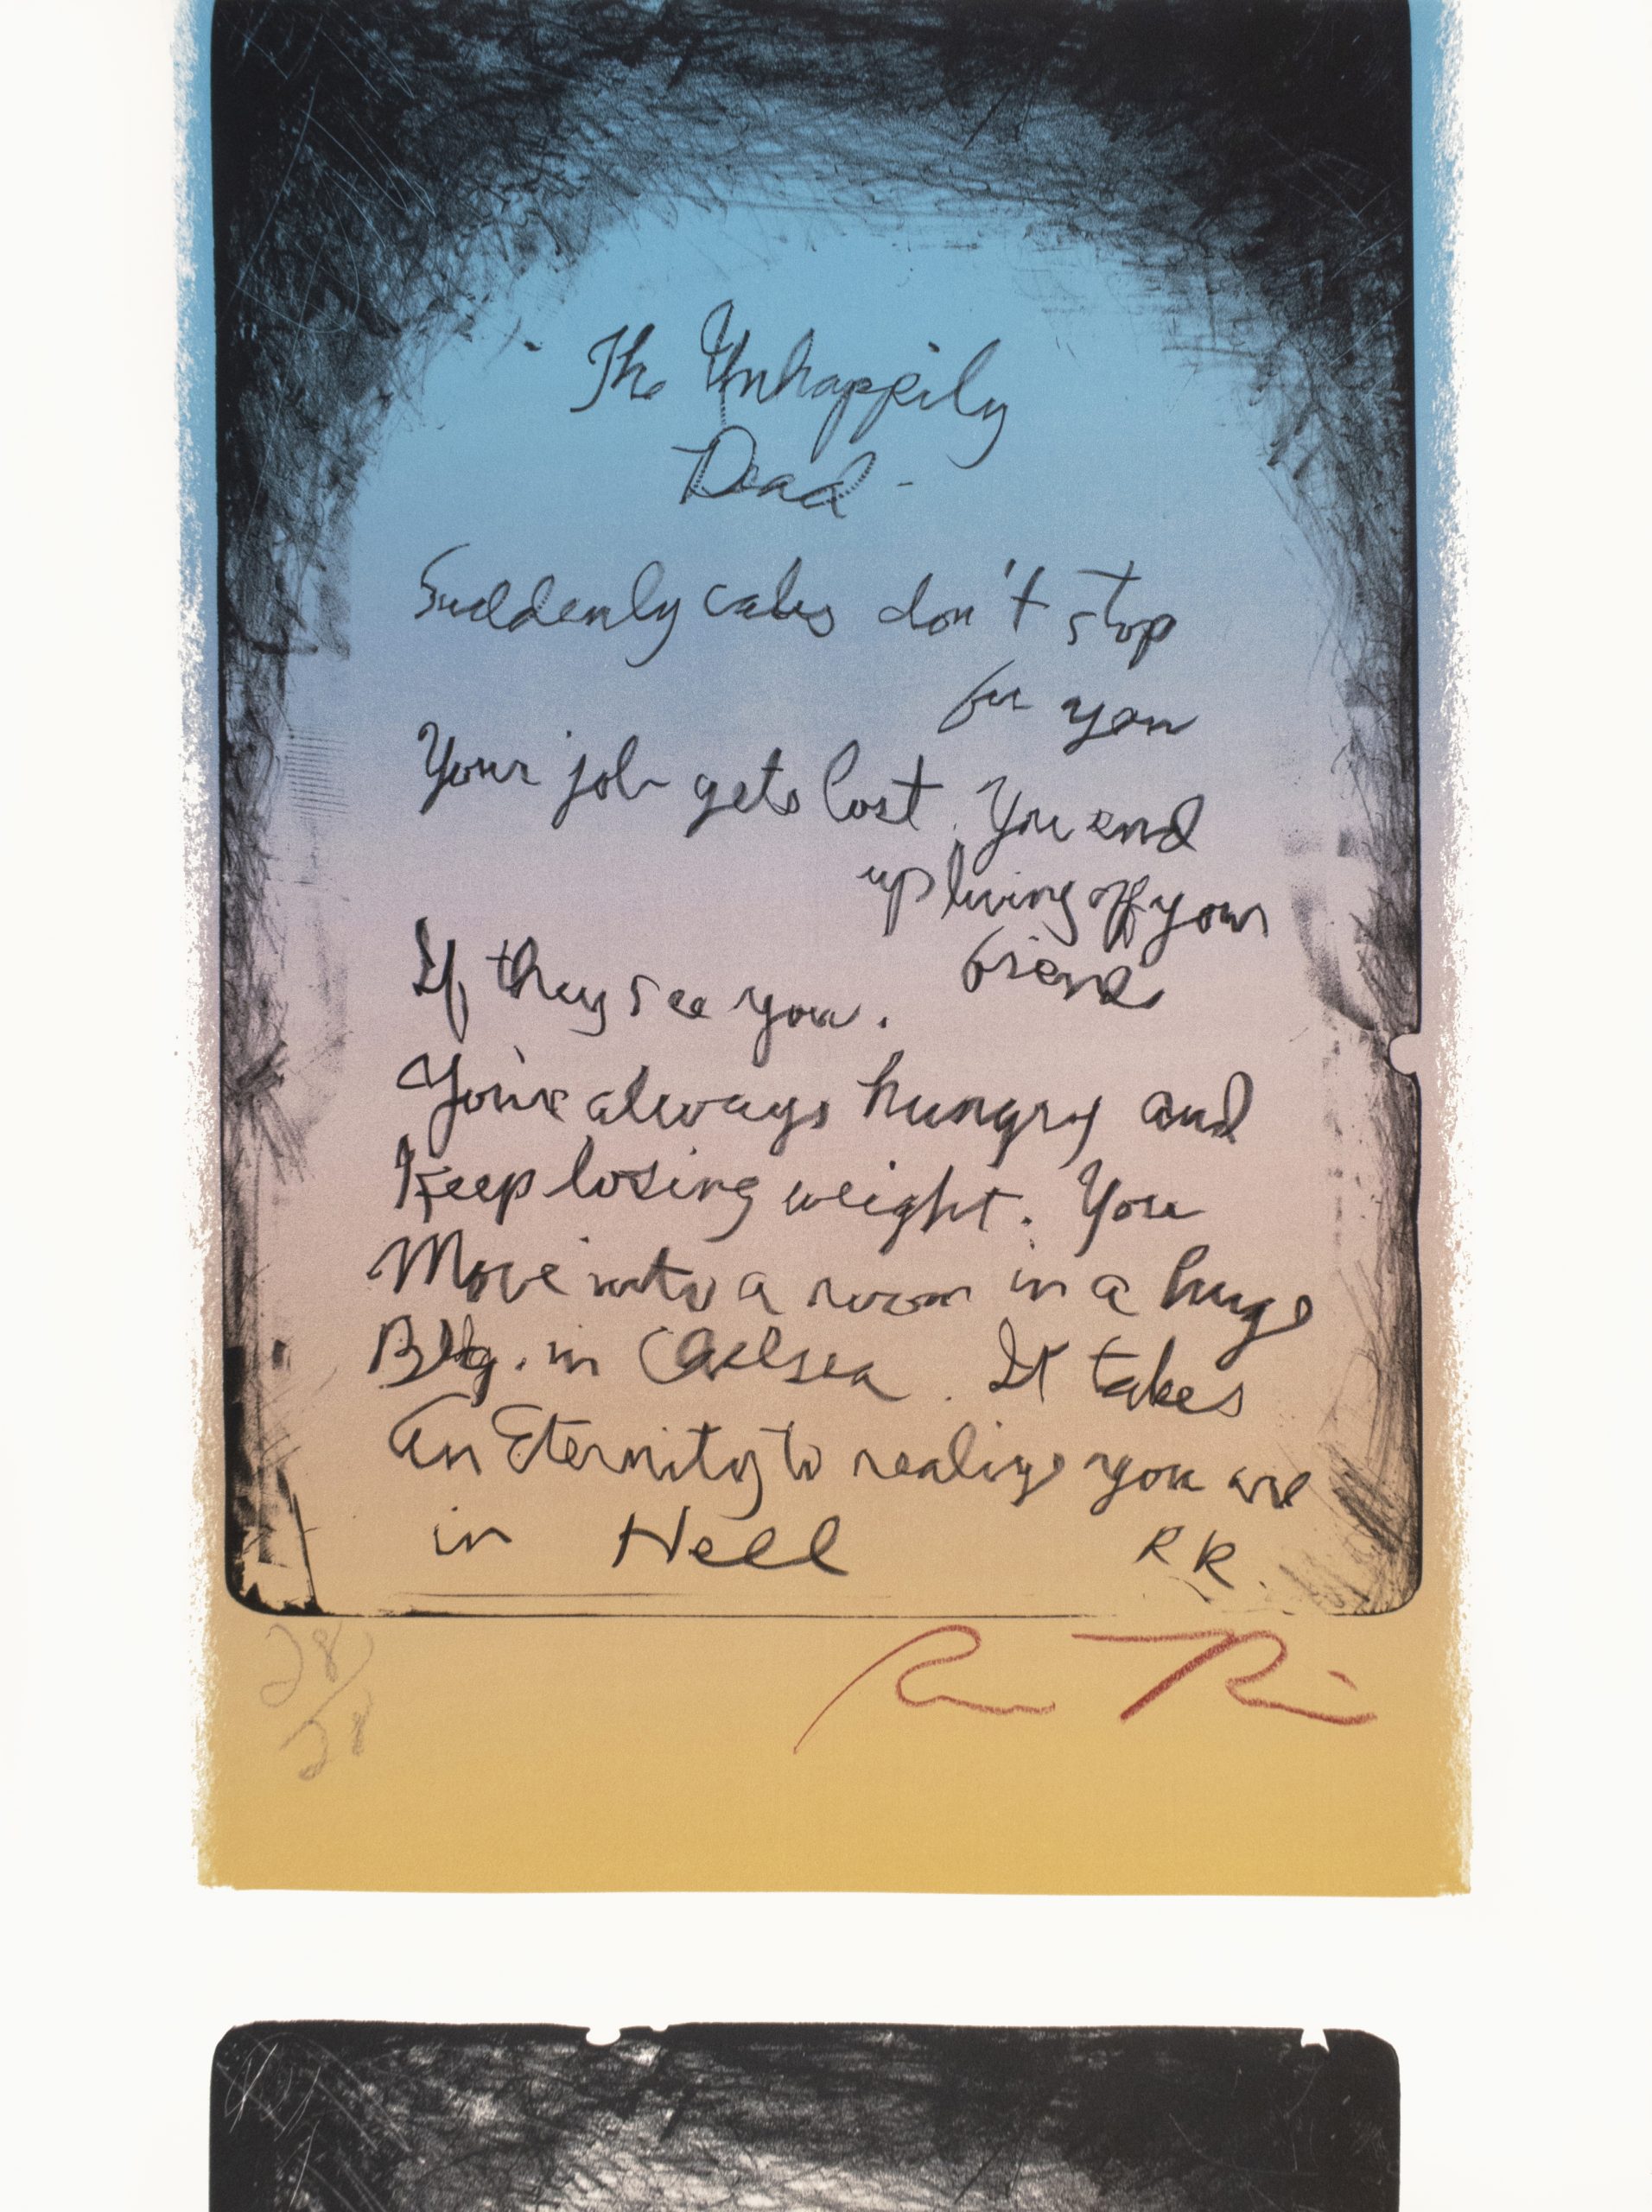 The Unhappily
Dead -
Suddenly cabs don't stop
for you
Your job gets lost. You end
up living off your
friends
If they see you.
You're always hungry and
Keep losing weight. You
Move into a room in a huge
Bldg. in Chelsea. It takes
An Eternity to realize you are
in Hell
RR.
28/28